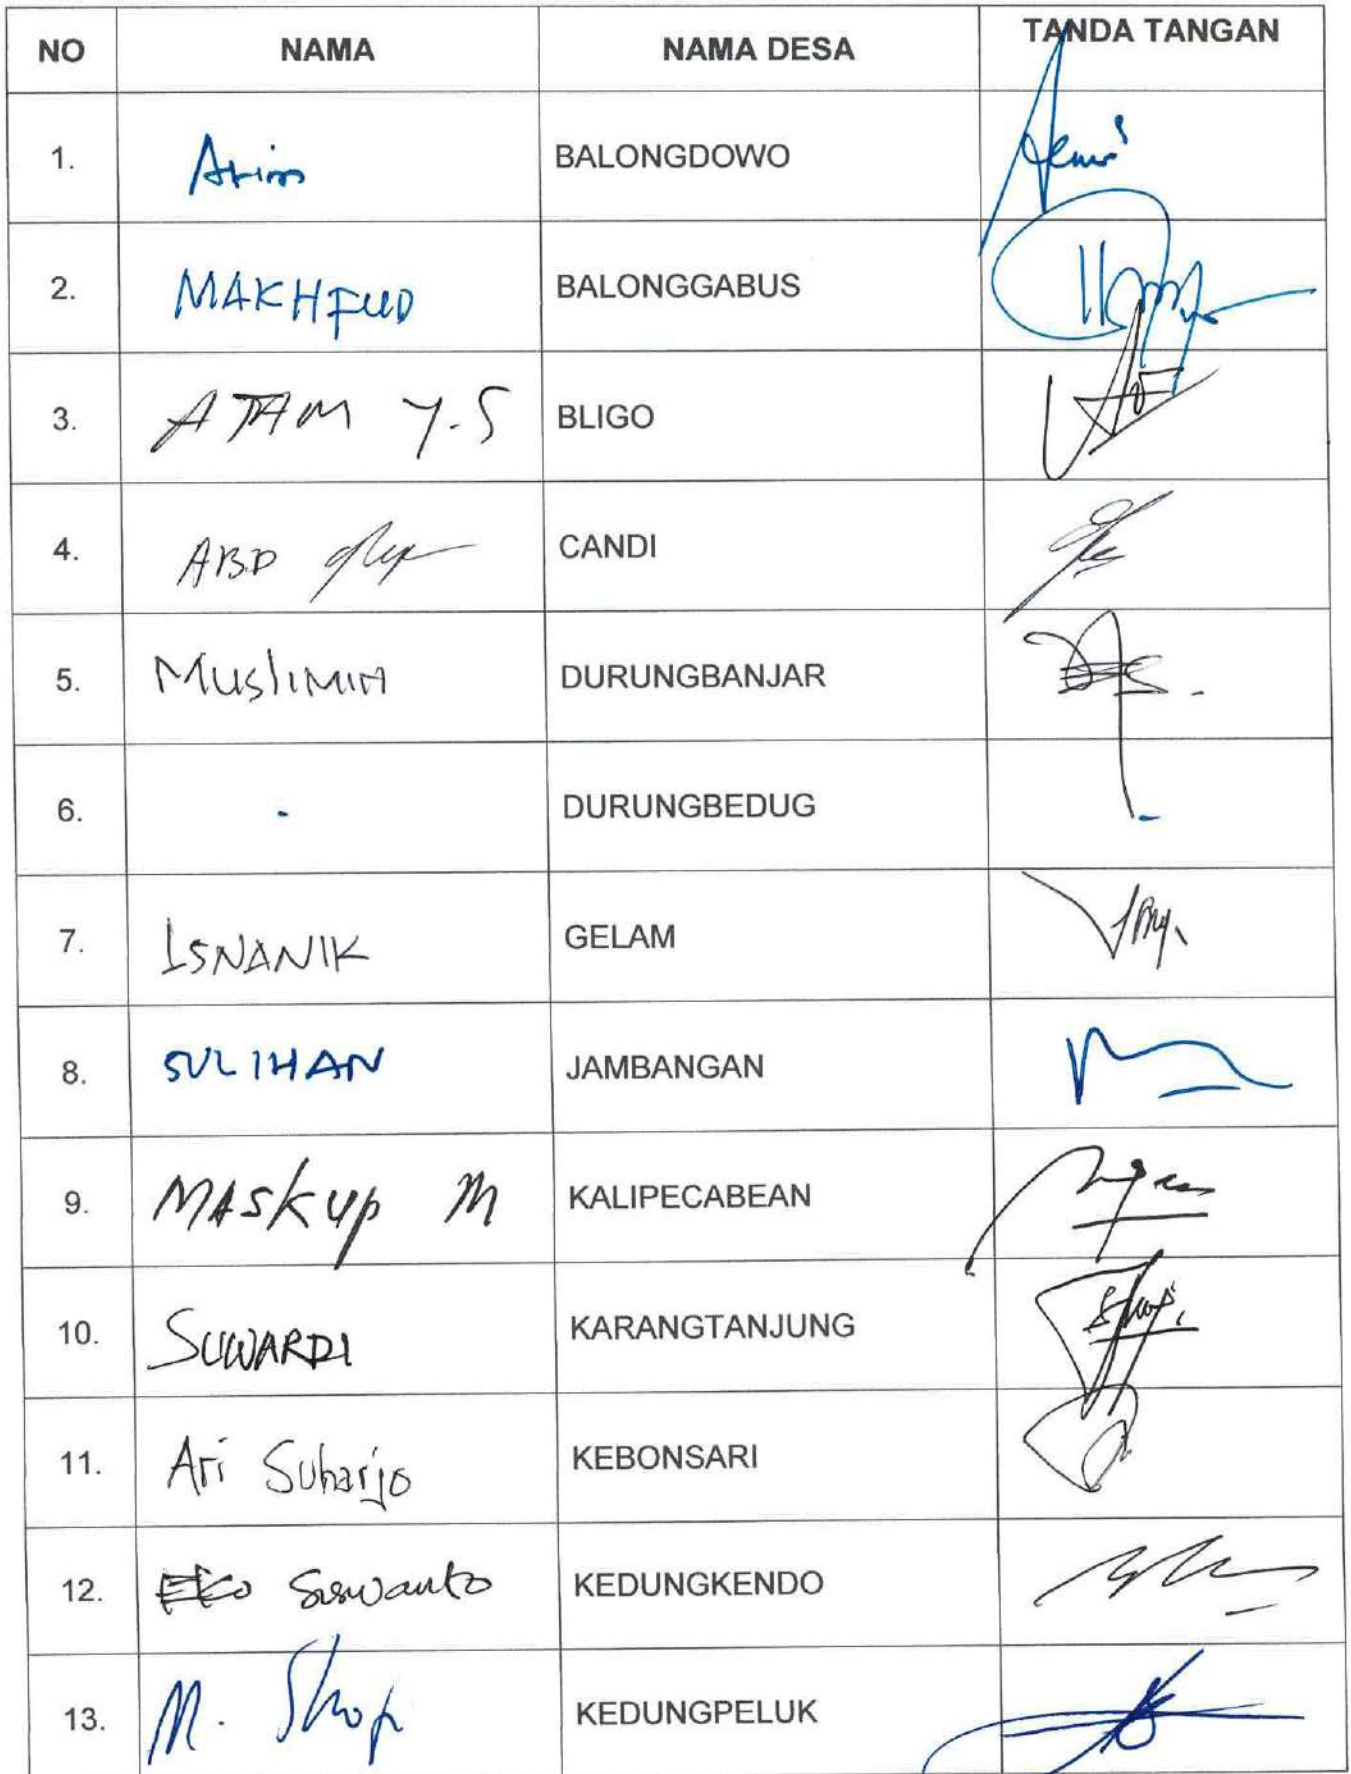 NO NAMA NAMA DESA TANDA TANGAN
1. BALONGDOWO
2. MAKHFUD BALONGGABUS
3. ATAM Y.S BLIGO
4. ABD CANDI
5. MuslIMIN DURUNGBANJAR
6. . DURUNGBEDUG -
7. ISNANIK GELAM
8. SULIHAN JAMBANGAN
9. MASkup M KALIPECABEAN
10. SUWARDI KARANGTANJUNG
11. Ari Suharjo KEBONSARI
12. EKo Siswanto KEDUNGKENDO
13. M. KEDUNGPELUK